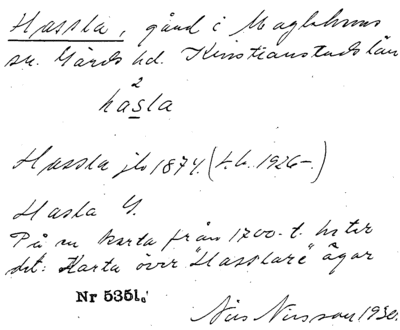 Hassla, gård i Maglehems
sn. Gärds hd. Kristianstads län
2
hasla
Hassla jb 1874. (t.b. 1926-.)
Hasla G.
På en karta från 1700-t. heter
det: Karta över "Hasslare" ägor
Nr 5351.
Nils Nilsson 1930.